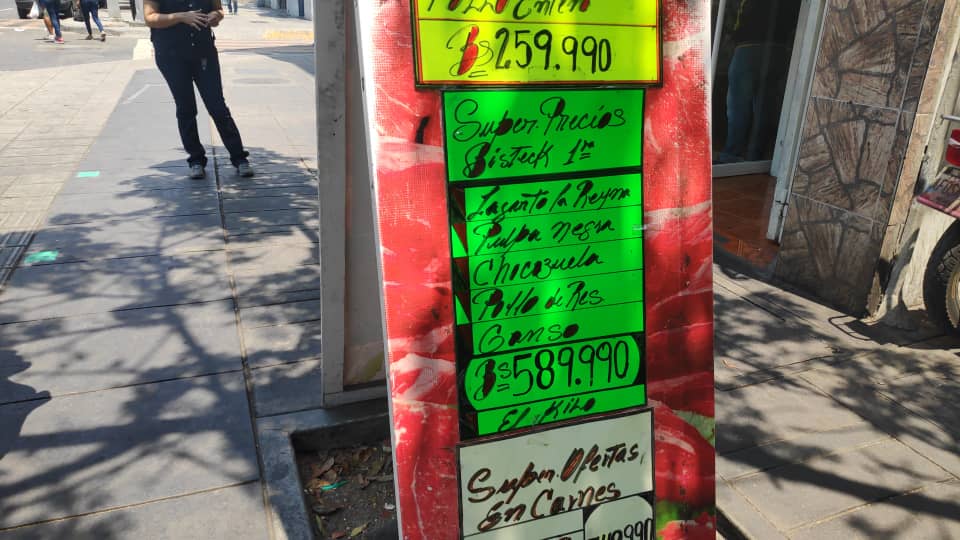 Pollo Entero
Bs 259.990
Super Precios
Bisteck 1ra
Lagarto la Reyna
Pulpa negra
Chocozuela
Pollo de Res
Ganso
Bs 589.990
El Kilo
Super Ofertas
En Carnes